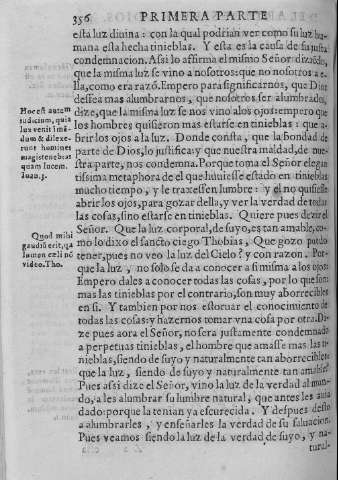 356 PRIMERA PARTE
esta luz diuina: con la qual podrian ver como su luz hu-
mana esta hecha tinieblas. Y esta es la causa de su justa
condemnacion. Assi lo affirma el mismo Señor diziẽdo,
que la misma luz se vino a nosotros: que no nosotros a e-
lla, como era razõ. Empero para significarnos, que Dios
dessea mas alumbrarnos, que nosotros ser alumbrados,
dize, que la misma luz se nos vino a los ojos: empero que
los hombres quisieron mas estarse en tinieblas: que a-
brir los ojos a la luz. Donde consta, que la bondad de
parte de Dios, lo justifica: y que nuestra maldad, de nue-
stra parte, nos condemna. Porque toma el Señor elegan
tissima metaphora de el que huuiesse estado en tinieblas
mucho tiempo, y le traxessen lumbre: y el no quisiesse
abrir los ojos, para gozar della, y ver la verdad de todas
las cosas, sino estarse en tinieblas. Quiere pues dezir el
Señor. Que la luz corporal, de suyo, es tan amable, co-
mo lo dixo el sancto ciego Thobias, Que gozo puedo
tener, pues no veo la luz del Cielo? y con razon. Por-
que la luz, no solo se da a conocer a si misma a los ojos:
Empero dales a conocer todas las cosas, por lo que son:
mas las tinieblas por el contrario, son muy aborrecibles
en si. Y tambien por nos estoruar el conocimiento de
todas las cosas: y hazernos tomar vna cosa por otra. Di-
ze pues aora el Señor, no sera justamente condemnado
a perpetuas tinieblas, el hombre que amasse mas las ti-
nieblas, siendo de suyo y naturalmente tan aborrecibles
que la luz, siendo de suyo y naturalmente tan amable?
Pues assi dize el Señor, vino la luz de la verdad al mun-
do, a les alumbrar su lumbre natural, que antes les auia
dado: porque la tenian ya escurecida. Y despues desto
a alumbrarles, y enseñarles la verdad de su saluacion.
Pues veamos siendo la luz de la verdad de suyo, y na-
tural-
Hoc est autem
iudicium, quia
lux venit I mũ
dum & dilexe-
runt homines
magis tenebras
quam lucem.
Ioan. 3.
Quod mihi
gaudiũ erit, qa
lumen cæli nõ
video. Tho.